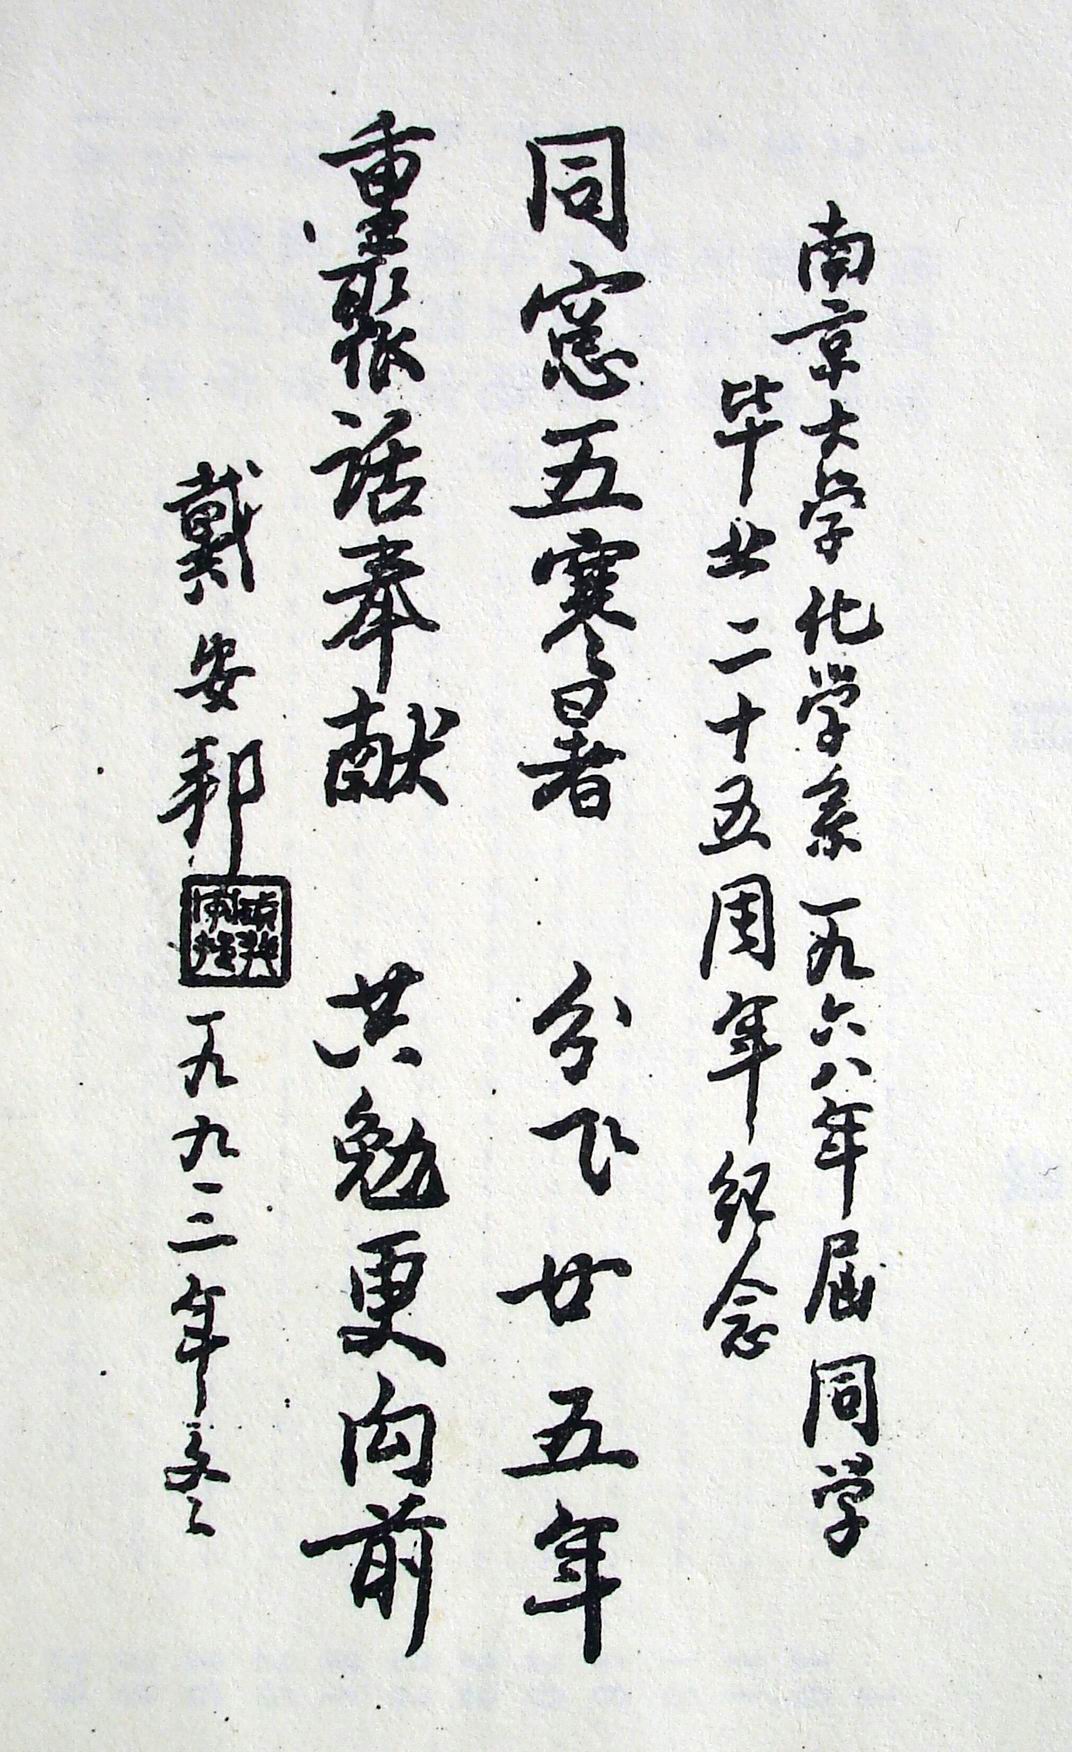 南京大学化学系一九六八年届同学
毕业二十五周年纪念
同窓五寒暑 分飞廿五年
重聚话奉献 共勉更向前
戴安邦 一九九三年冬